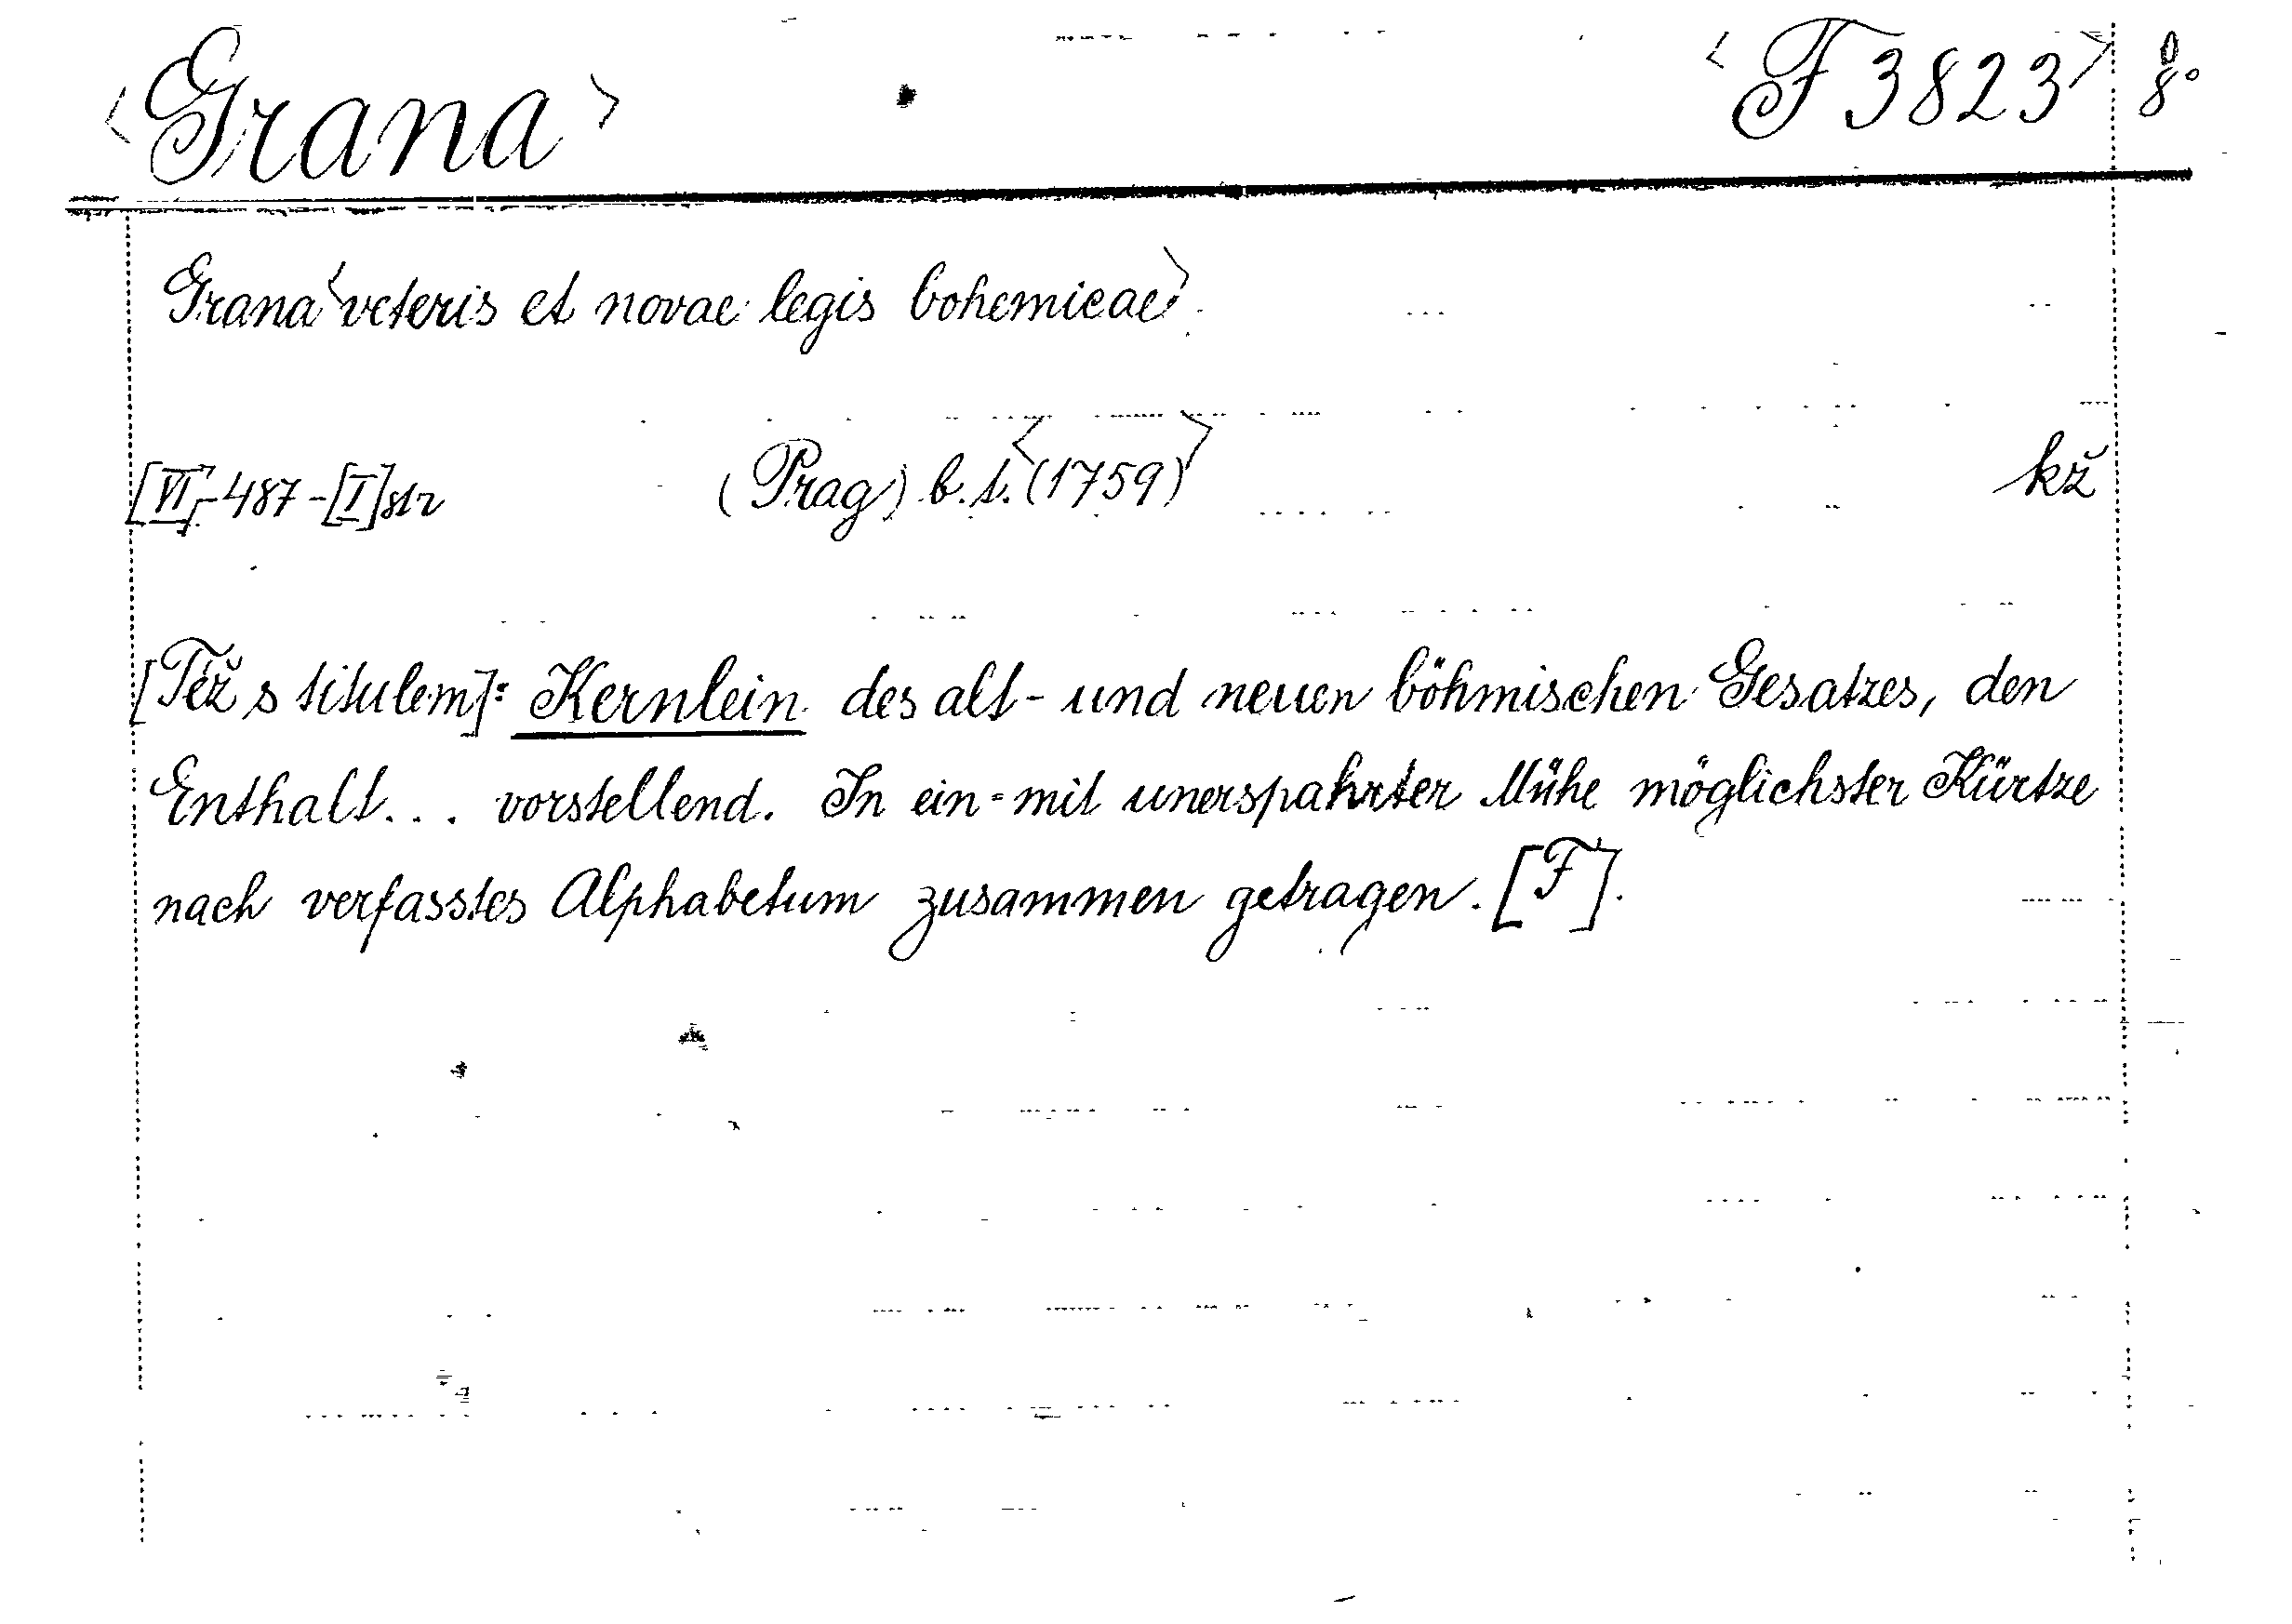 <Grana> <F 3823> 8°
Grana <veteris et novae legis bohemicae>.
[VI]-487-[I] str (Prag) b. t. <(1759)> kž
[Též s titulem]: Kernlein des alt- und neuen böhmischen Gesatzes, den
Enthalt... vorstellend. In ein-mit unerspahrter Mühe möglichster Kürtze
nach verfasstes Alphabetum zusammen getragen. [F].